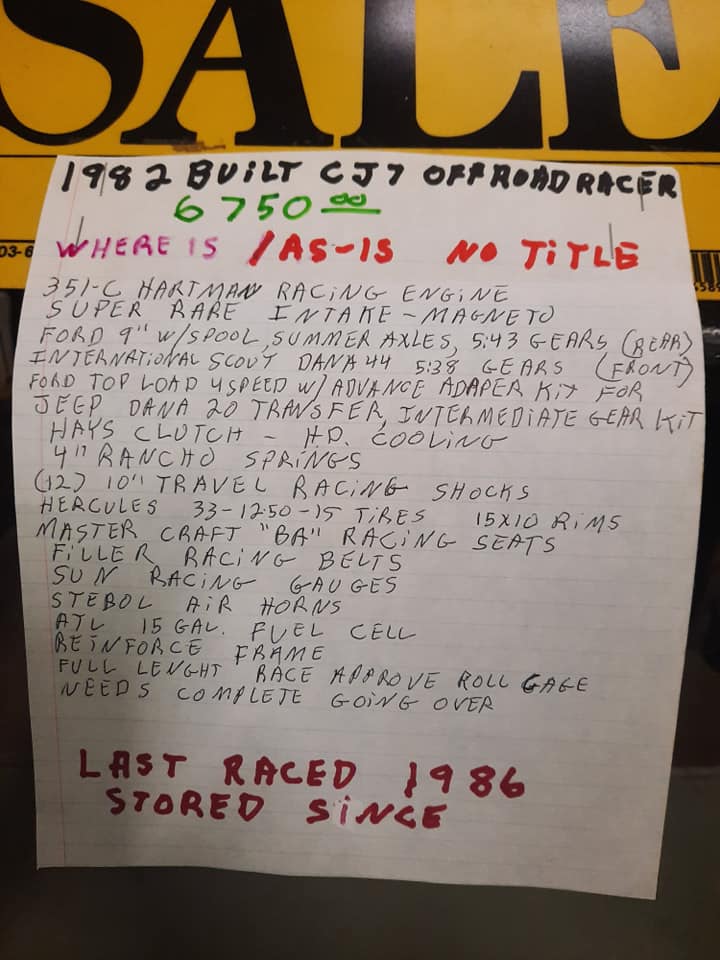 SALE
1982 BUiLT CJ7 OFFROAD RACER
6750.00
WHERE IS /AS-IS NO TiTLE
03-6
351-C HARTMAN RACING ENGINE
SUPER RARE INTAKE-MAGNETO
FORD 9" W/SPOOL, SUMMER AXLES, 5:43 GEARS (REAR)
INTERNATIONAL SCOUT DANA 44 5:38 GEARS (FRONT)
FORD TOP LOAD 4SPEED W/ADVANCE ADAPER KiT FOR
JEEP DANA 20 TRANSFER, INTERMEDIATE GEAR KiT
HAYS CLUTCH - H.D. COOLING
4" RANCHO SPRINGS
(12) 10" TRAVEL RACING SHOCKS
HERCULES 33-12:50-15 TiRES 15X10 RiMS
MASTER CRAFT "BA" RACING SEATS
FiLLER RACING BELTS
SUN RACING GAUGES
STEBOL AiR HORNS
ATL 15 GAL. FUEL CELL
REiNFORCE FRAME
FULL LENGHT RACE APPROVE ROLL GAGE
NEEDS COMPLETE GOiNG OVER
LAST RACED 1986
STORED SiNCE